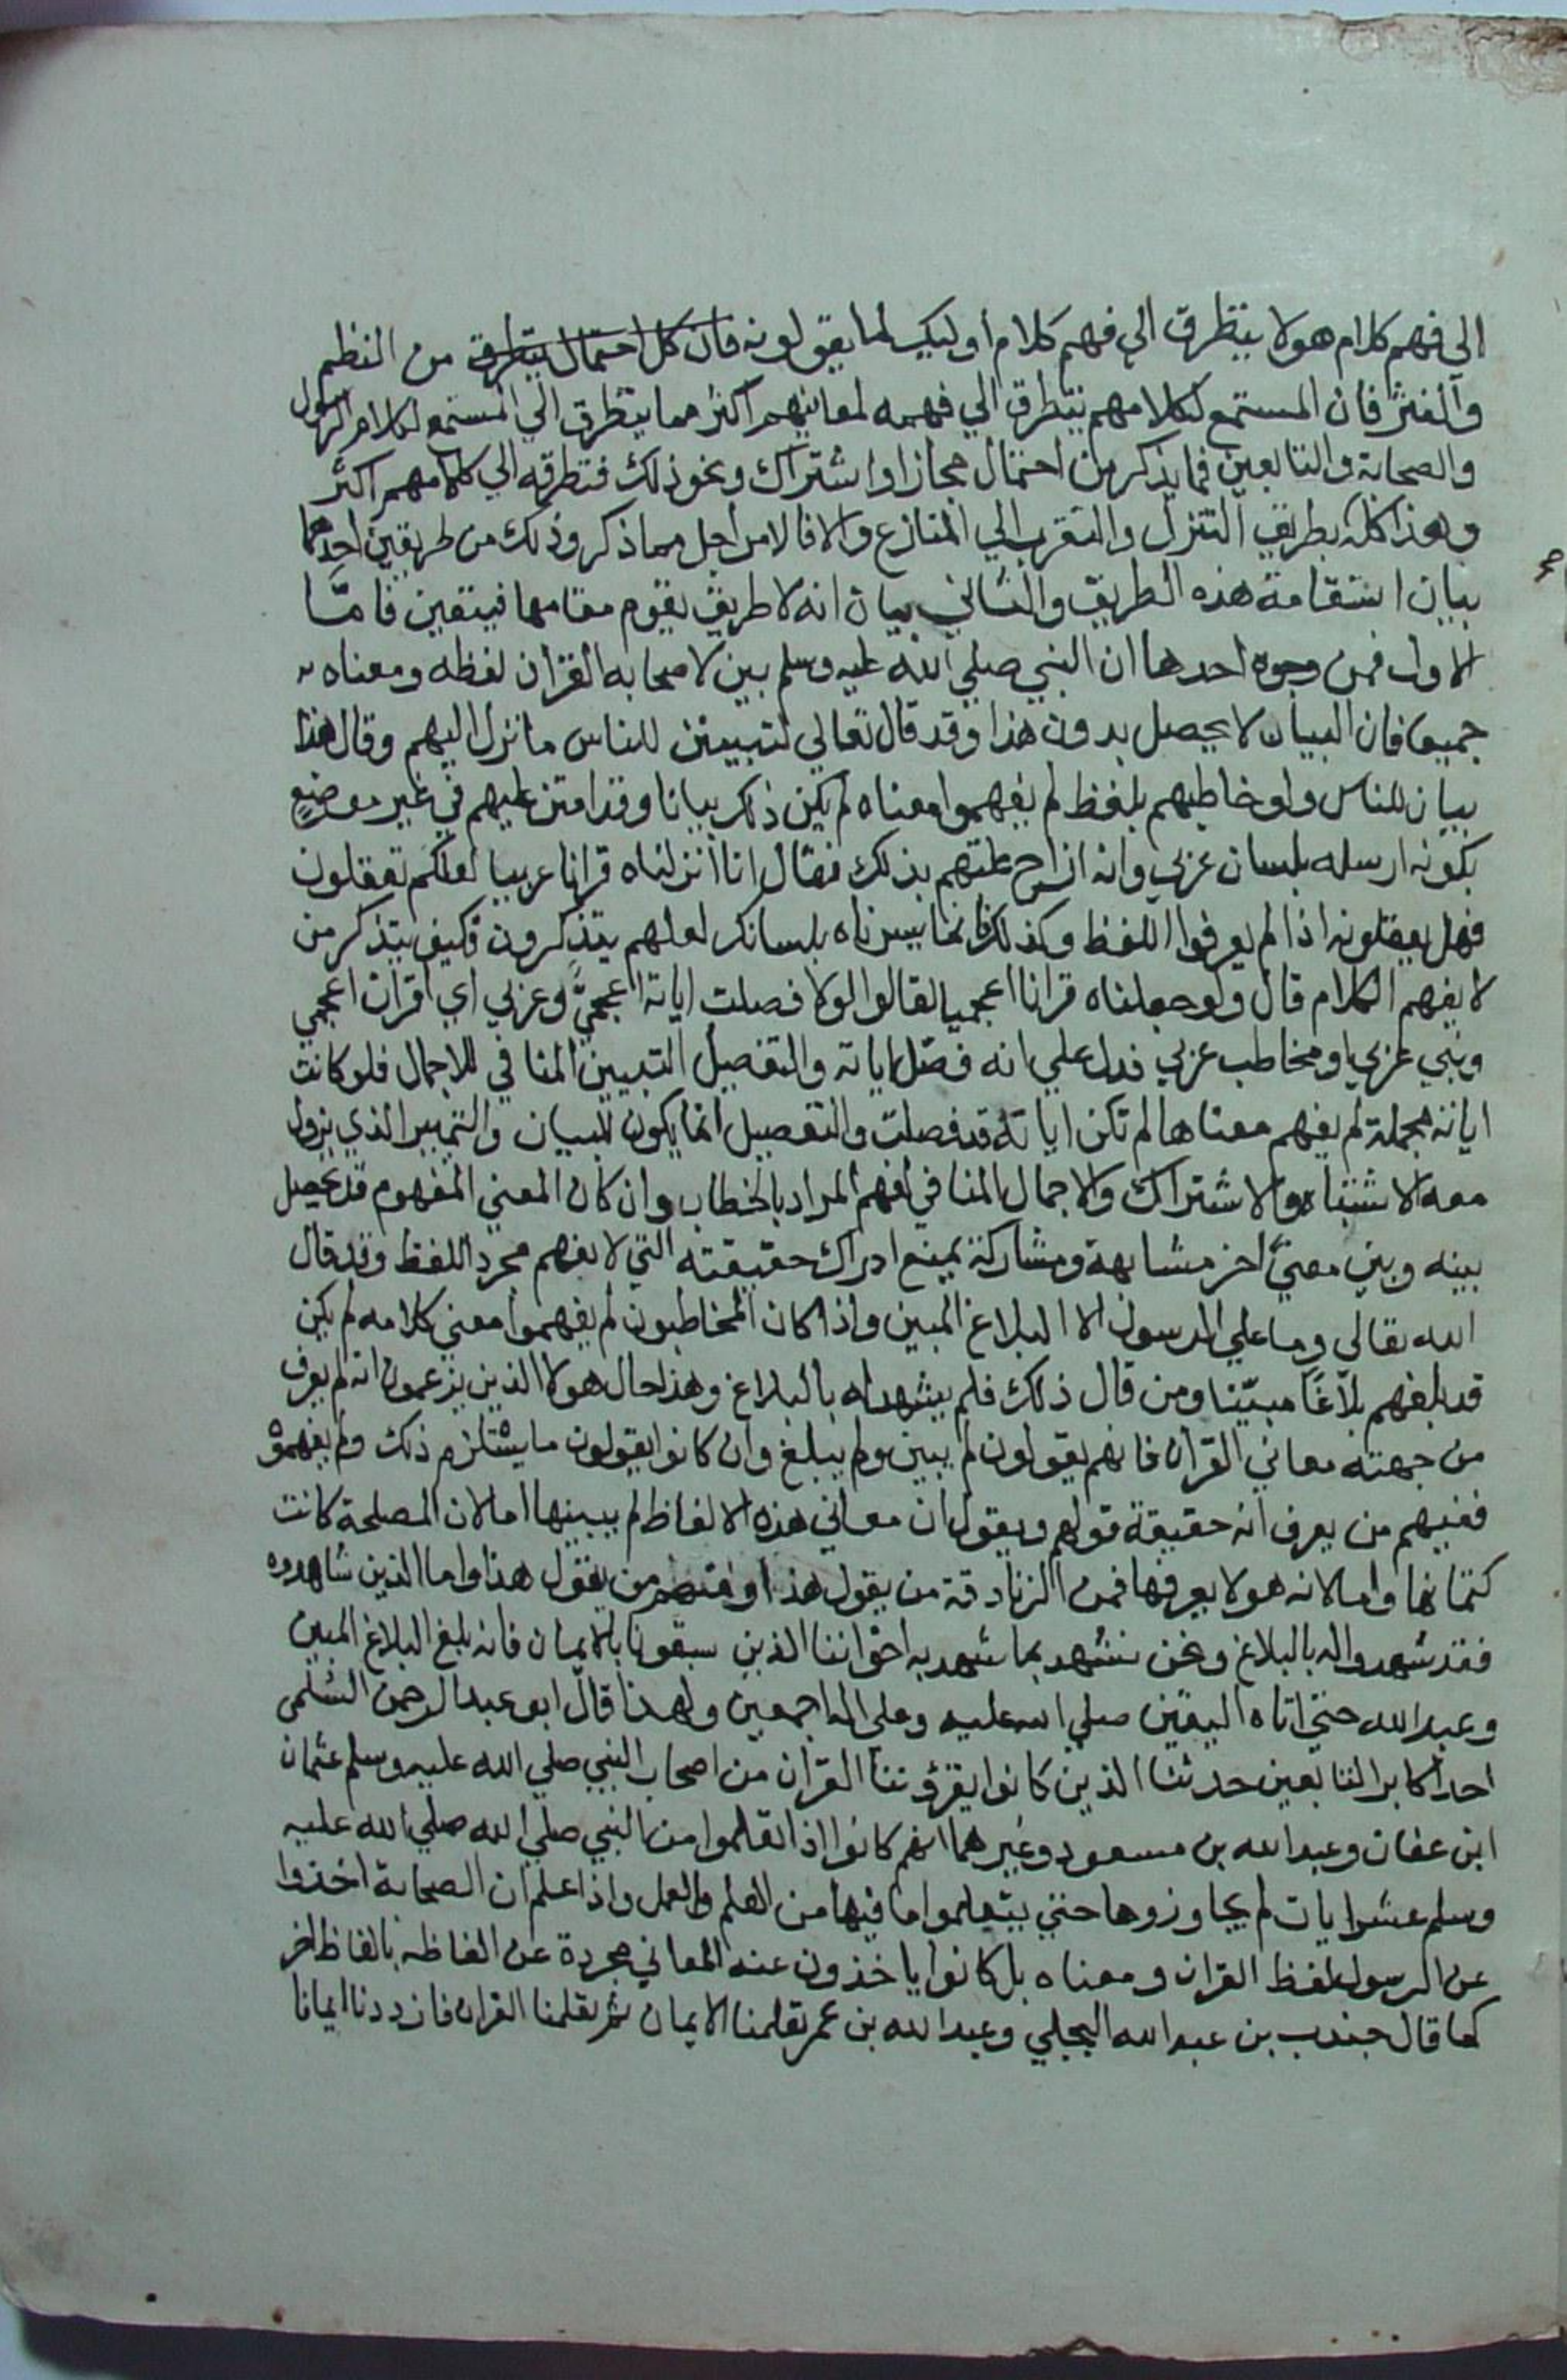 الى فهم كلام هولا يتطرق الي فهم كلام اوليك لما يقولونه فان كل احتمال يتطرق من النظم
والنثر فان المستمع لكلامهم يتطرق الي فهمه لمعانيهم اكثر مما يتطرق الي المستمع لكلام الرسول
والصحابة والتابعين فما يذكر من احتمال مجاز او اشتراك ونحو ذلك فتطرقه الي كلامهم اكثر
وهذا كله بطريق التنزل والتقرب الي المنازع والا فالامر اجل مما ذكر وذلك من طريقين احدهما
بيان استقامة هذه الطريق والثاني بيان انه لا طريق يقوم مقامها فيتعين فامّا
الاول فمن وجوه احدها ان النبي صلي الله عليه وسلم بين لاصحابه القران لفظه ومعناه
جميعا فان البيان لا يحصل بدون هذا وقد قال تعالي لتبيين للناس ما نزل اليهم وقال هذا
بيان للناس ولو خاطبهم بلفظ لم يفهموا معناه لم يكن ذكر بيانا وقد امتن عليهم في غير موضع
بكونه ارسله بلسان عربي وانه ازاح علتهم بذلك فقال انا انزلناه قرانا عربيا لعلكم تعقلون
فهل يعقلونه اذا لم يعرفوا اللفظ وكذلك فانما يسرناه بلسانك لعلهم يتذكرون فكيف يتذكر من
لا يفهم الكلام قال ولو جعلناه قرانا اعجميا لقالوا لولا فصلت اياته اعجميٌّ وعربي اي اقران اعجمي
ونبي عربي او مخاطب عربي فدل علي انه فصّل اياته والتفصيل التبيين المنافي للاجمال فلو كانت
اياته مجملة لم يفهم معناها لم تكن اياته قد فصلت والتفصيل انما يكون للبيان والتمييز الذي يزول
معه الاشتباه والاشتراك والاجمال المنافي لفهم المراد بالخطاب وان كان المعني المفهوم قد يحصل
بينه وبين معنيً اخر مشابهة ومشاركة يمنع ادراك حقيقته التي لا يفهم مجرد اللفظ وقد قال
الله تعالى وما علي الرسول الا البلاغ المبين واذا كان المخاطبون لم يفهموا معني كلامه لم يكن
قد بلغهم بلاغًا مبيّنا ومن قال ذلك فلم يشهد له بالبلاغ وهذا حال هولا الذين يزعمون انه لم يعرف
من جهته معاني القران فانهم يقولون لم يبين ولم يبلغ وان كانوا يقولون ما يستلزم ذلك ولم يفهموه
ففيهم من يعرف انه حقيقة قولهم ويقول ان معاني هذه الالفاظ لم يبينها اما لان المصلحة كانت
كتمانها واما لانه هو لا يعرفها فمن الزنادقة من يقول هذا ومنهم من يقول هذا واما الذين شاهدوه
فقد شهدوا له بالبلاغ ونحن نشهد بما شهد به اخواننا الذين سبقونا بالايمان فانه بلغ البلاغ المبين
وعبد الله حتي اتاه اليقين صلي الله عليه وعلى اله اجمعين ولهذا قال ابو عبد الرحمن السّلمى
احد اكابر التابعين حدثنا الذين كانوا يقرؤننا القران من اصحاب النبي صلي الله عليه وسلم عثمان
ابن عفان وعبد الله بن مسعود وغيرهما انهم كانوا اذا تعلموا من النبي صلي الله صلي الله عليه
وسلم عشر ايات لم يجاوزوها حتي يتعلموا ما فيها من العلم والعمل واذا علم ان الصحابة اخذوا
عن الرسول لفظ القران ومعناه بل كانوا ياخذون عنه المعاني مجردة عن الفاظه بالفاظ اخر
كما قال جندب بن عبد الله البجلي وعبد الله بن عمر تعلمنا الايمان ثم تعلمنا القران فازددنا ايمانا